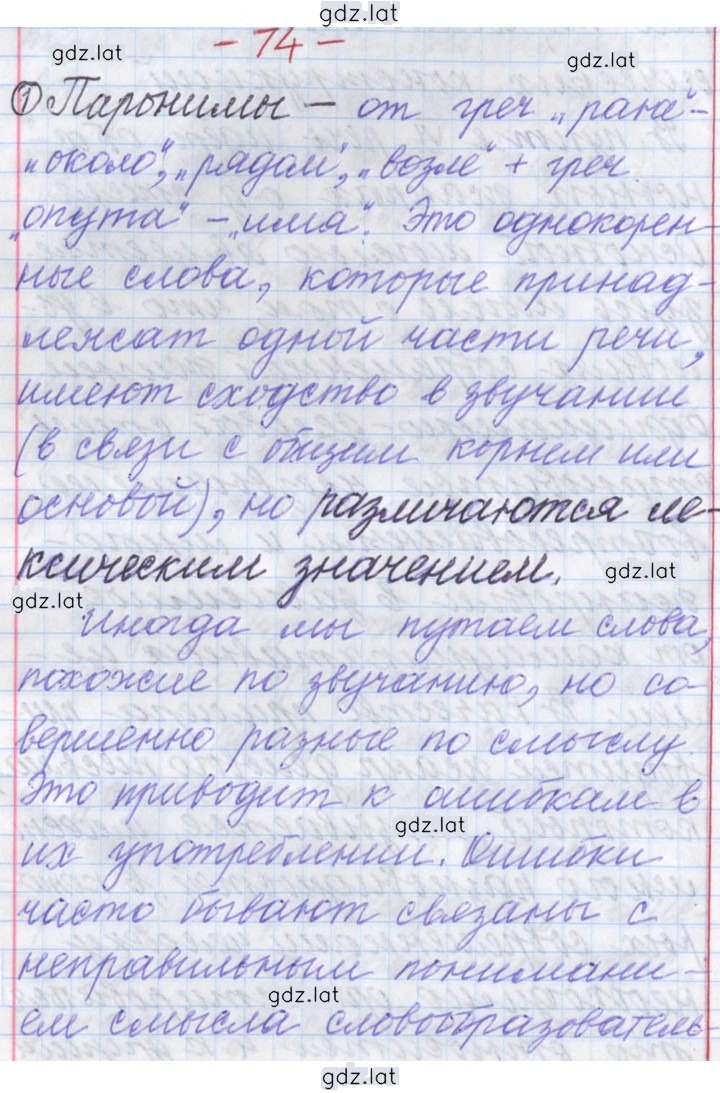 gdz.lat
- 74 -
gdz.lat
gdz.lat
① Паронимы – от греч „para“ –
„около“, „рядом“, „возле“ + греч
„onyma“ – „имя“. Это однокорен-
ные слова, которые принад-
лежат одной части речи,
имеют сходство в звучании
(в связи с общим корнем или
основой), но различаются ле-
ксическим значением.
gdz.lat
gdz.lat
Иногда мы путаем слова,
похожие по звучанию, но со-
вершенно разные по смыслу.
Это приводит к ошибкам в
gdz.lat
их употреблении. Ошибки
часто бывают связаны с
неправильным понимани-
gdz.lat
ем смысла словообразователь-
gdz.lat